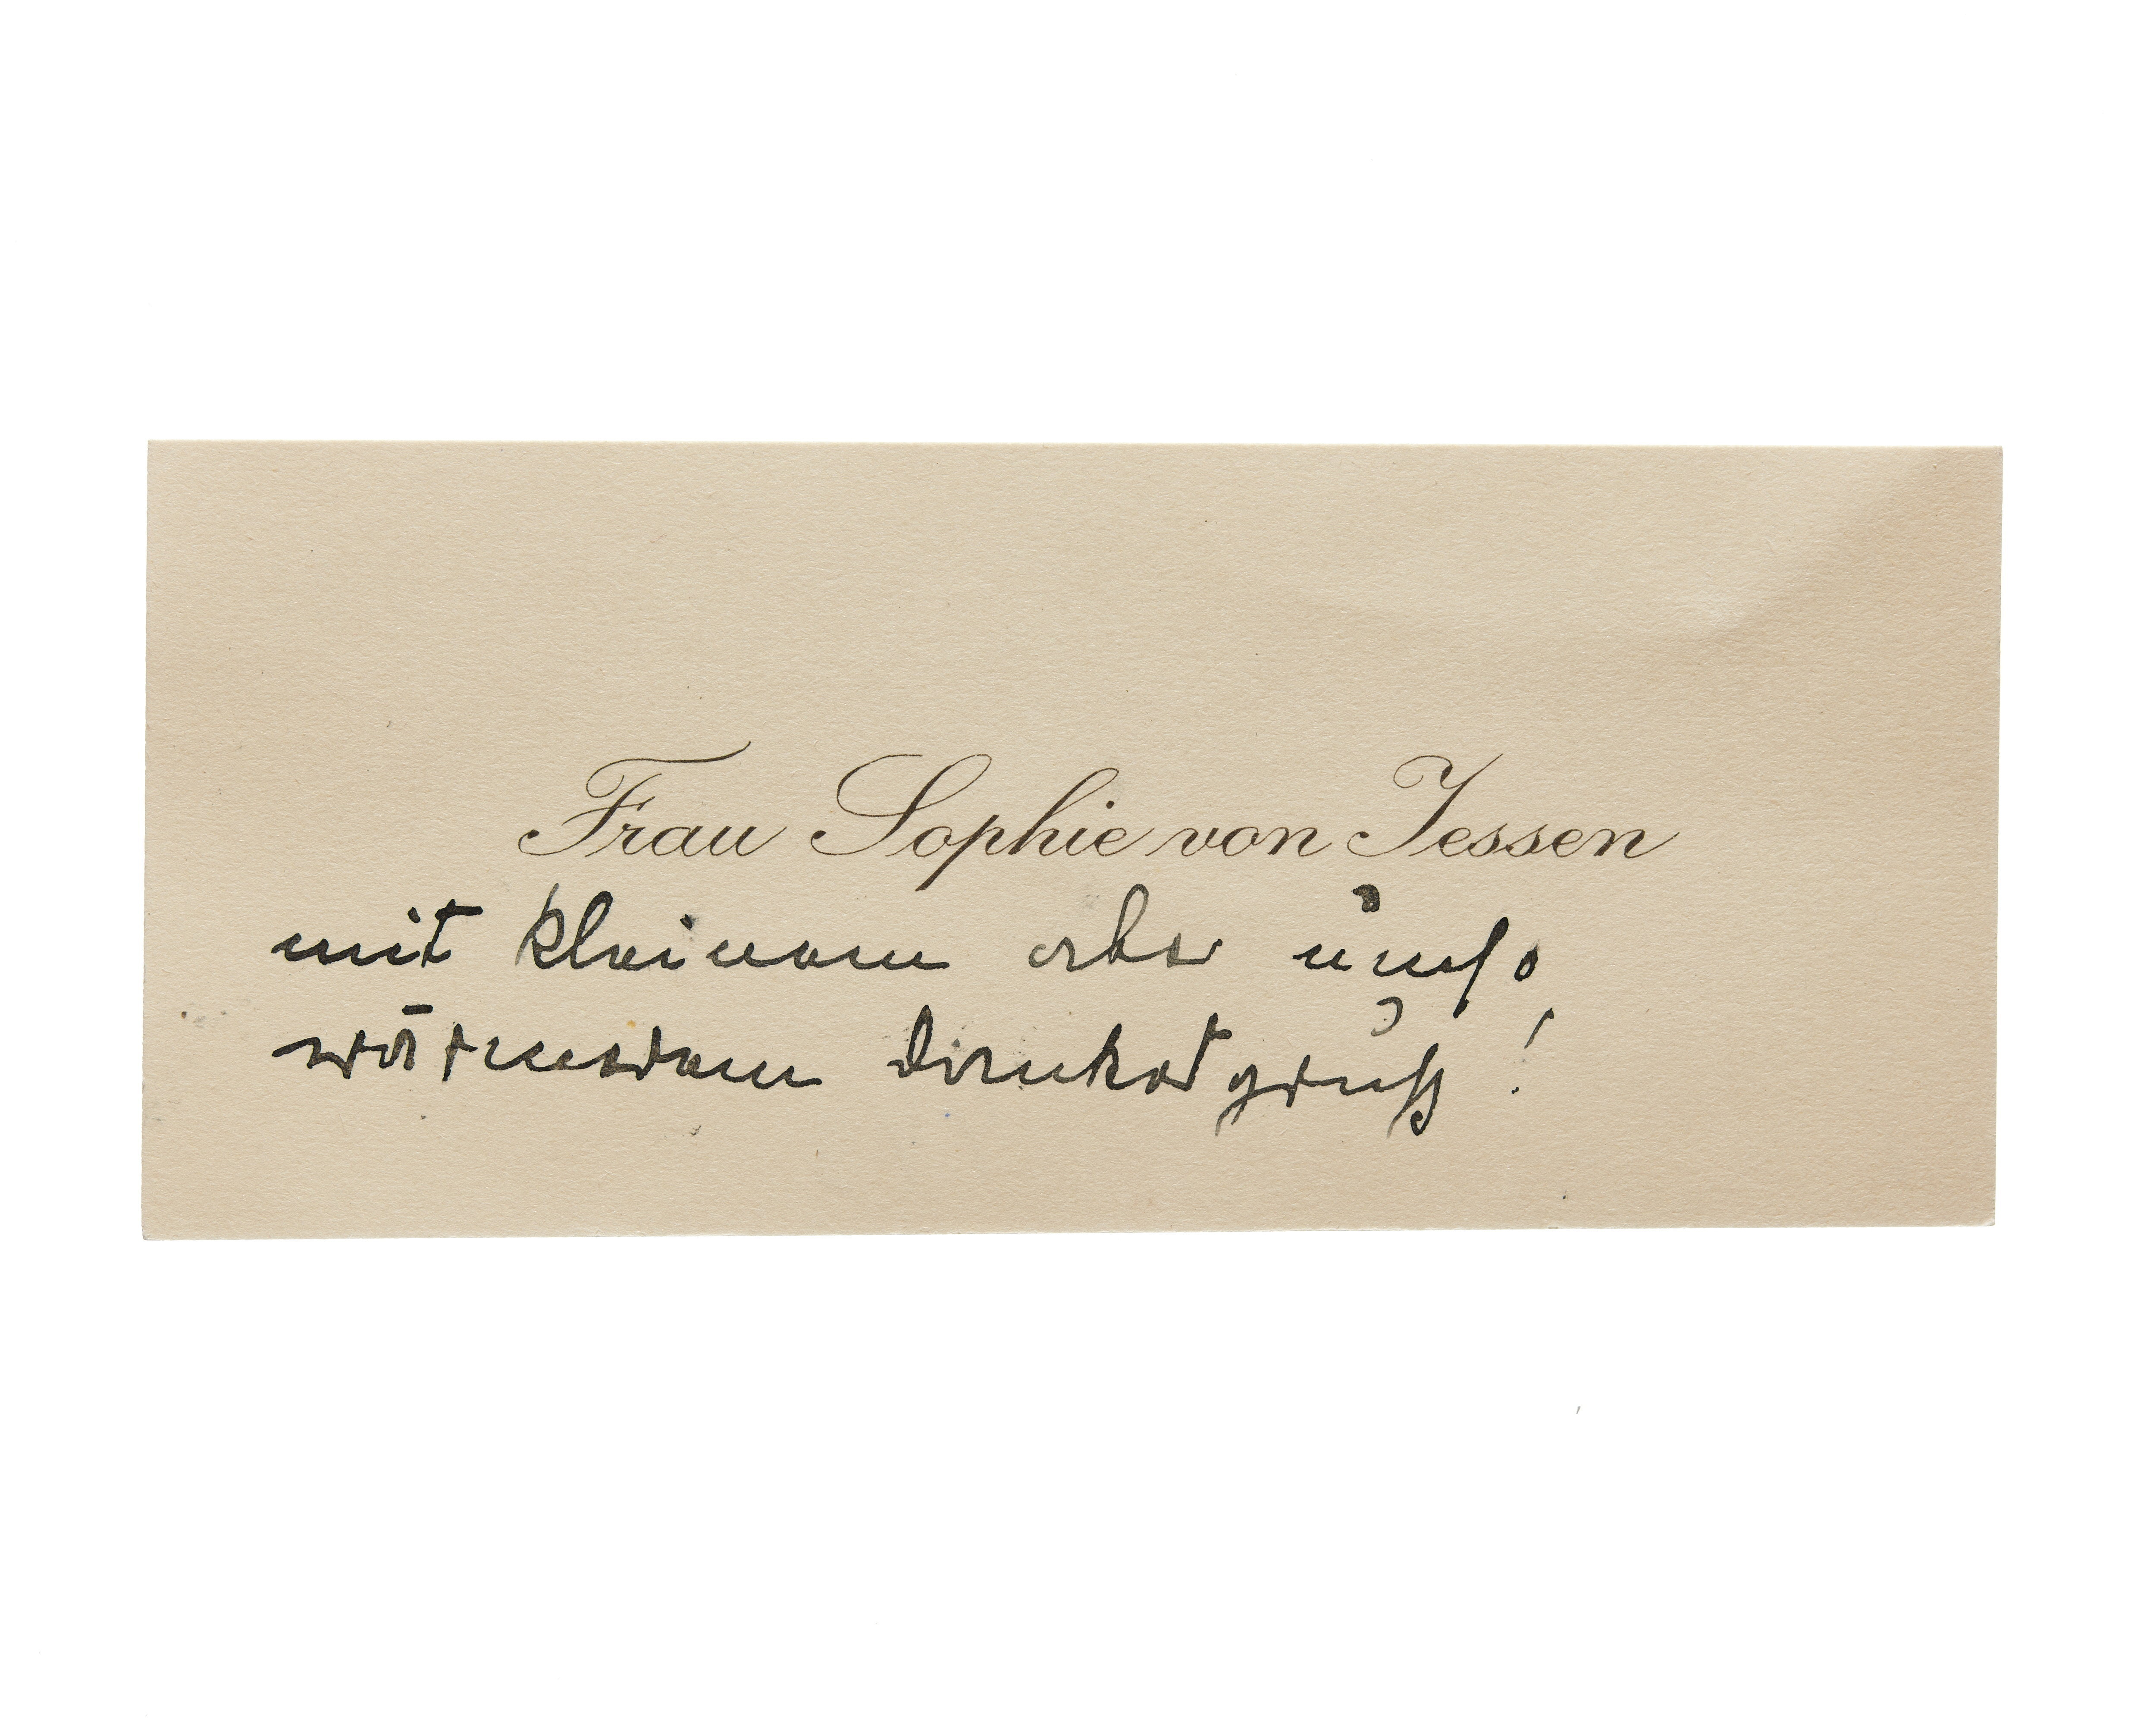 Frau Sophie von Jessen
mit kleinem aber umso
wärmerem Dankesgruß!